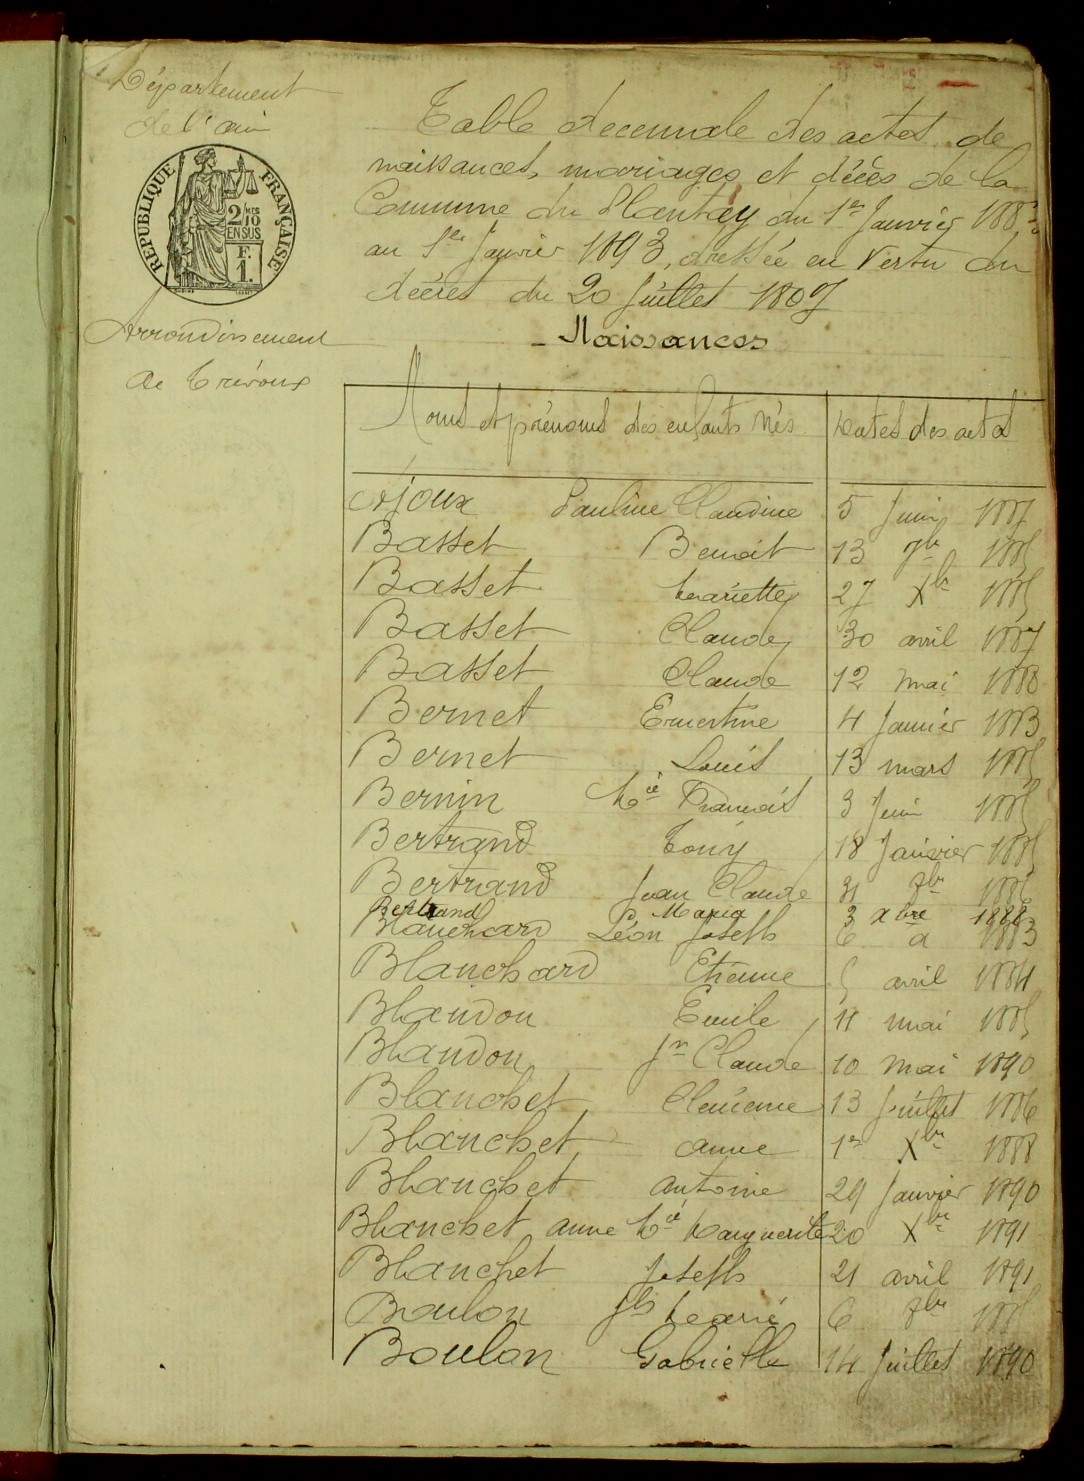 Département
de l'ain
RÉPUBLIQUE FRANÇAISE
2/10
EN SUS
F.
1.
Arrondissement
de Trévoux
Table decennale des actes de
naissances, mariages et décès de la
Commune du Plantay du 1er Janvier 1883
au 1er Janvier 1893, dressée en Vertu du
décret du 20 Juillet 1807
- Naissances
Noms et prénoms des enfants nés Dates des actes
Ajoux Pauline Claudine 5 Juin 1887
Basset Benoit 13 7bre 1885
Basset Mariette 27 Xbre 1885
Basset Claude 30 avril 1887
Basset Claude 12 mai 1888
Bernet Ernestine 4 Janvier 1883
Bernet Louis 13 mars 1885
Bernin Mie Francois 3 Juin 1885
Bertrand Tony 18 Janvier 1885
Bertrand Jean Claude 7bre 1886
Bertrand Maria 3 xbre 1888
Blanchard Léon Joseph 6 d 1883
Blanchard Etienne 5 avril 1884
Blandon Emile 11 mai 1885
Blandon Jn Claude 10 mai 1890
Blanchet 13 Juillet 1886
Blanchet anne 1er Xbre 1888
Blanchet antoine 29 Janvier 1890
Blanchet anne Mie Marguerite 20 Xbre 1891
Blanchet Joseph 21 avril 1891
Boulon Jh Marie 6 1885
Boulon Gabrielle 14 Juillet 1890